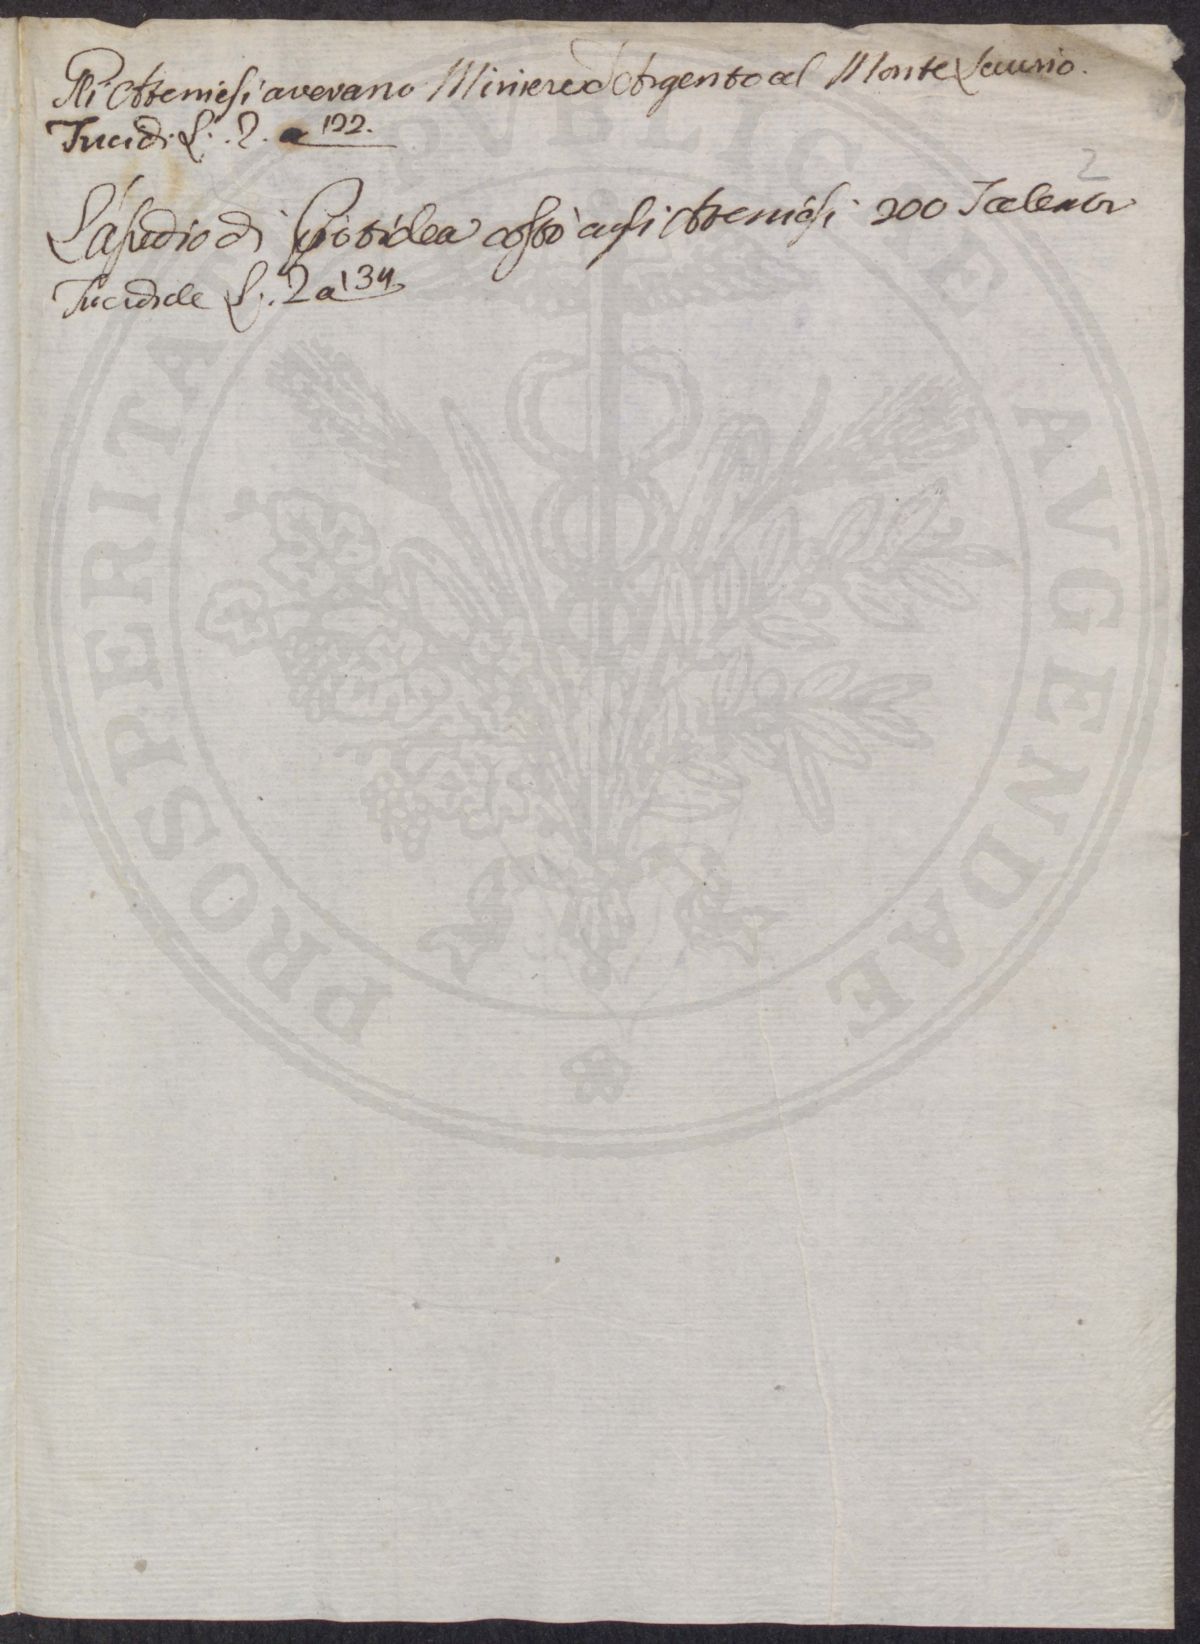 Gli Ateniesi avevano Miniere d'Argento al Monte Laurio.
Tucid. L. 2. a 122.
2
L'assedio di Potidea costò agli Ateniesi 200 Talenti
Tucidide L. 2 a 134
PROSPERITATI PVBLICAE AVGENDAE